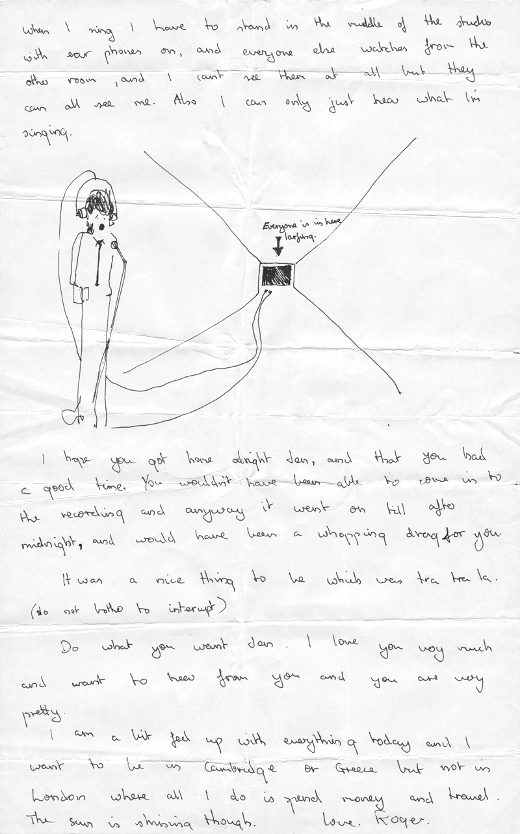 when I sing I have to stand in the middle of the studio
with ear phones on, and everyone else watches from the
other room, and I cant see them at all but they
can all see me. Also I can only just hear what I'm
singing.
Everyone is in here
larfing.
I hope you got home alright Jen, and that you had
a good time. You wouldn't have been able to come in to
the recording and anyway it went on till after
midnight, and would have been a whopping drag for you
It was a nice thing to be which was tra tra la.
(do not bother to interupt)
Do what you want Jen. I love you very much
and want to hear from you and you are very
pretty.
I am a bit fed up with everything today and I
want to be in Cambridge or Greece but not in
London where all I do is spend money and travel.
The sun is shining though. Love. Roger.